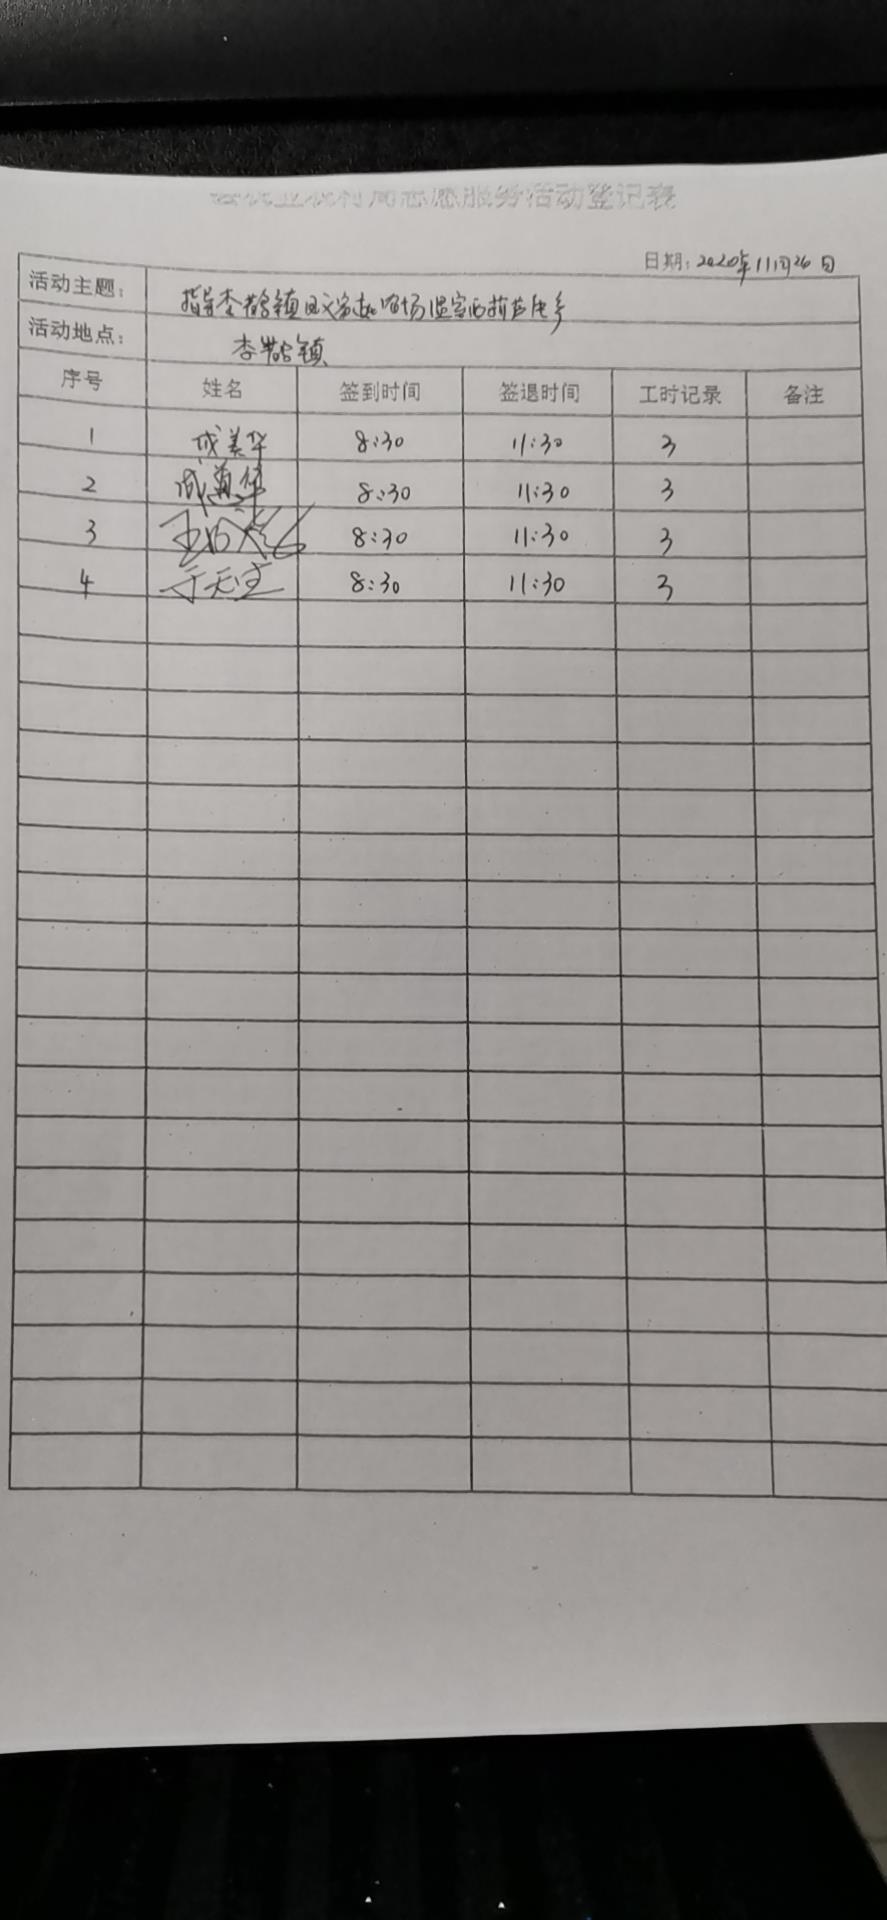 县农业农村局志愿服务活动登记表
日期：2020年11月26日
活动主题： 指导李鹊镇
活动地点： 李鹊镇
序号 姓名 签到时间 签退时间 工时记录 备注
1 成美华 8:30 11:30 3
2 8:30 11:30 3
3 8:30 11:30 3
4 于天宝 8:30 11:30 3